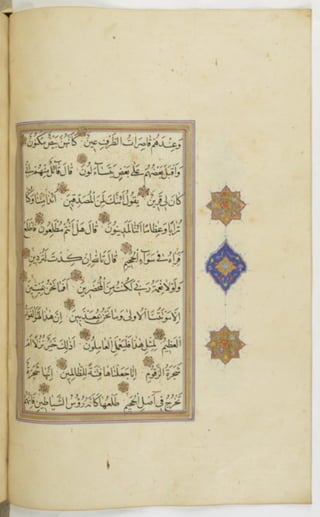 وَعِنْدَهُمْ قَاصِرَاتُ الطَّرْفِ عِينٌ كَأَنَّهُنَّ بَيْضٌ مَكْنُونٌ
فَأَقْبَلَ بَعْضُهُمْ عَلَى بَعْضٍ يَتَسَاءَلُونَ قَالَ قَائِلٌ مِنْهُمْ إِنِّي
كَانَ لِي قَرِينٌ يَقُولُ أَئِنَّكَ لَمِنَ الْمُصَدِّقِينَ أَئِذَا مِتْنَا وَكُنَّا
تُرَابًا وَعِظَامًا أَئِنَّا لَمَدِينُونَ قَالَ هَلْ أَنْتُمْ مُطَّلِعُونَ فَاطَّلَعَ
فَرَآهُ فِي سَوَاءِ الْجَحِيمِ قَالَ تَاللَّهِ إِنْ كِدْتَ لَتُرْدِينِ
وَلَوْلَا نِعْمَةُ رَبِّي لَكُنْتُ مِنَ الْمُحْضَرِينَ أَفَمَا نَحْنُ بِمَيِّتِينَ
إِلَّا مَوْتَتَنَا الْأُولَى وَمَا نَحْنُ بِمُعَذَّبِينَ إِنَّ هَذَا لَهُوَ الْفَوْزُ
الْعَظِيمُ لِمِثْلِ هَذَا فَلْيَعْمَلِ الْعَامِلُونَ أَذَلِكَ خَيْرٌ نُزُلًا أَمْ
شَجَرَةُ الزَّقُّومِ إِنَّا جَعَلْنَاهَا فِتْنَةً لِلظَّالِمِينَ إِنَّهَا شَجَرَةٌ
تَخْرُجُ فِي أَصْلِ الْجَحِيمِ طَلْعُهَا كَأَنَّهُ رُؤُسُ الشَّيَاطِينِ فَإِنَّهُمْ